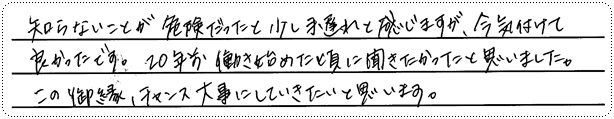 知らないことが危険だったと少し手遅れと感じますが、今気付けて
良かったです。20年前働き始めた頃に聞きたかったと思いました。
この御縁、チャンス大事にしていきたいと思います。